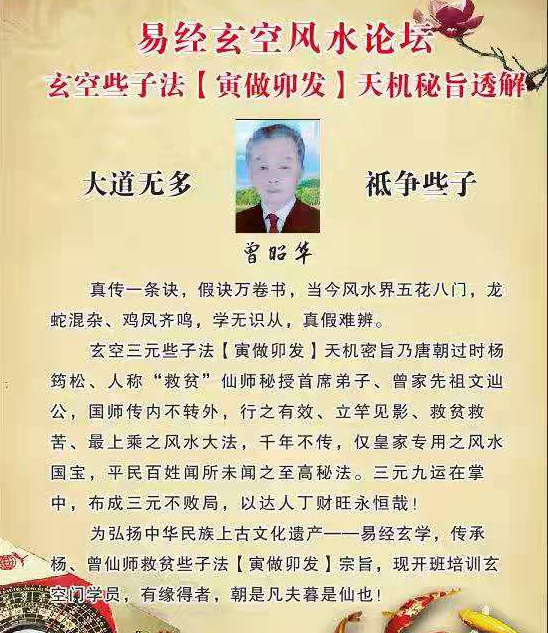 易经玄空风水论坛
玄空些子法【寅做卯发】天机秘旨透解
大道无多
祗争些子
曾昭华
真传一条诀，假诀万卷书，当今风水界五花八门，龙
蛇混杂、鸡凤齐鸣，学无识从，真假难辨。
玄空三元些子法【寅做卯发】天机密旨乃唐朝过时杨
筠松、人称“救贫”仙师秘授首席弟子、曾家先祖文辿
公，国师传内不转外，行之有效、立竿见影、救贫救
苦、最上乘之风水大法，千年不传，仅皇家专用之风水
国宝，平民百姓闻所未闻之至高秘法。三元九运在掌
中，布成三元不败局，以达人丁财旺永恒哉！
为弘扬中华民族上古文化遗产——易经玄学，传承
杨、曾仙师救贫些子法【寅做卯发】宗旨，现开班培训玄
空门学员，有缘得者，朝是凡夫暮是仙也！